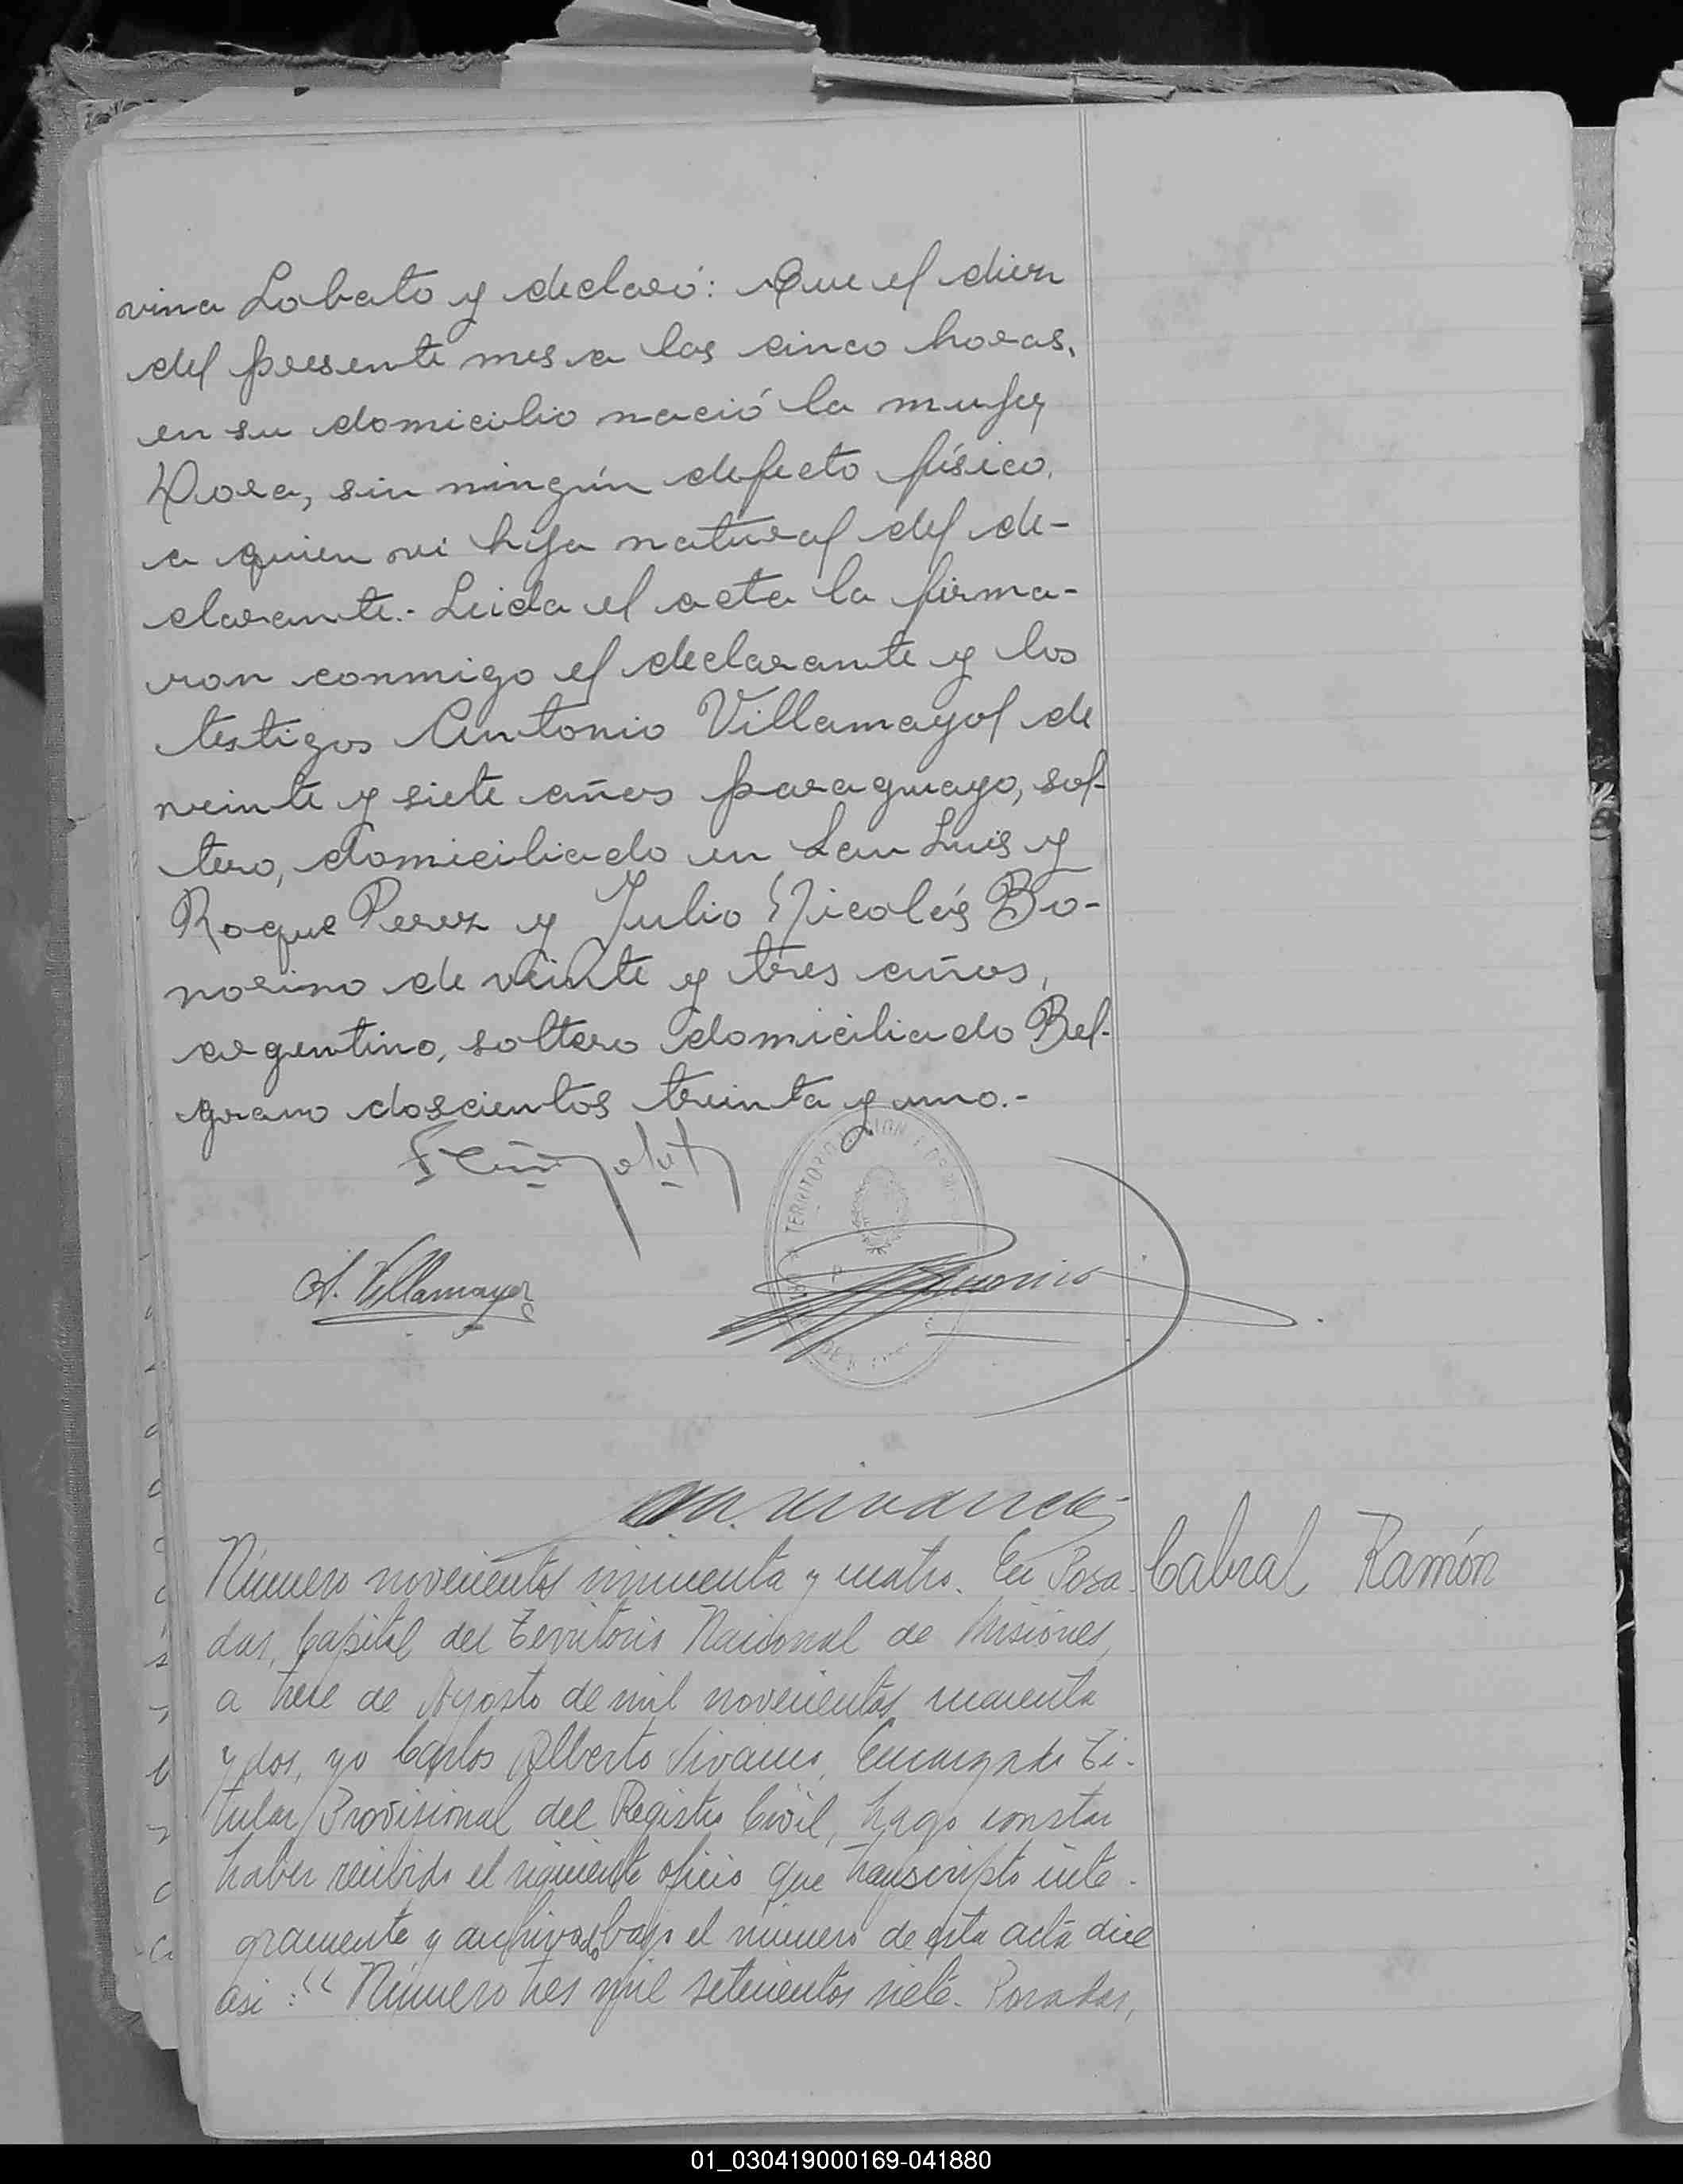 vina Lobato y declaró: Que el diez
del presente mes a las cinco horas,
en su domicilio nació la mujer
Dora, sin ningún defecto físico,
a quien vi hija natural del de-
clarante.- Leida el acta la firma-
ron conmigo el declarante y los
testigos Antonio Villamayol de
veinte y siete años paraguayo, sol-
tero, domiciliado en San Luis y
Roque Perez y Julio Nicolás Bo-
norino de veinte y tres años,
argentino, soltero domiciliado Bel-
grano doscientos treinta y uno.-
TERRITORIO
A. Villamayor
Número novecientos cincuenta y cuatro. En Posa
Cabral Ramón
das, Capital del Territorio Nacional de Misiones,
a trece de Agosto de mil novecientos cuarenta
y dos, yo Carlos Alberto Vivanco, Encargado Ti-
tular Provisional del Registro Civil, hago constar
haber recibido el siguiente oficio que transcripto inte-
gramente y archivado bajo el número de esta acta dice
asi: "Número tres mil setecientos siete. Posadas,
01_030419000169-041880